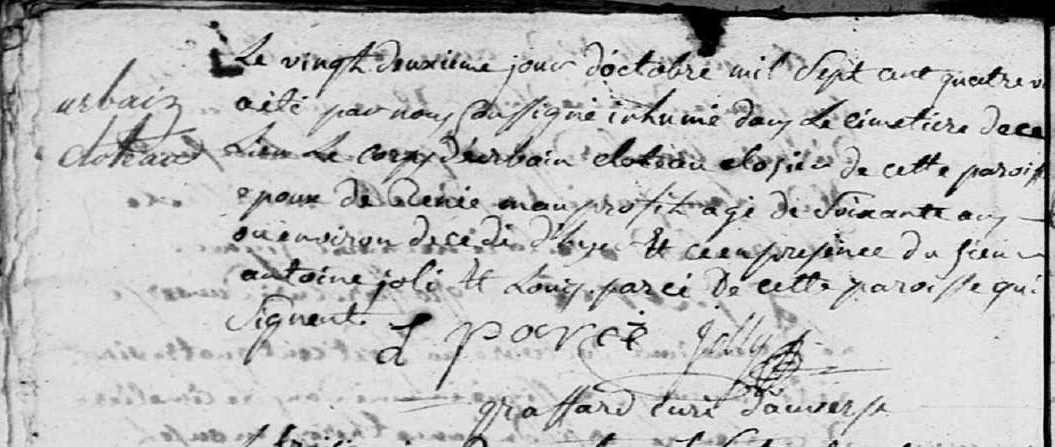 Le vingt deuxieme jour d'octobre mil Sept cent quatre v
urbain
a été par nous Soussigné inhumé dans Le cimetiere de ce
cloteau
Lieu Le corps d'urbain cloteau closier de cette paroisse
epoux de Renée mauprofit agé de Soixante ans
ou environ decedé d'hyer Et ce en presence du Sieur
antoine joli Et Louis parcé de cette paroisse qui
Signent.
L parcé Jolly
graffard curé d'auvers